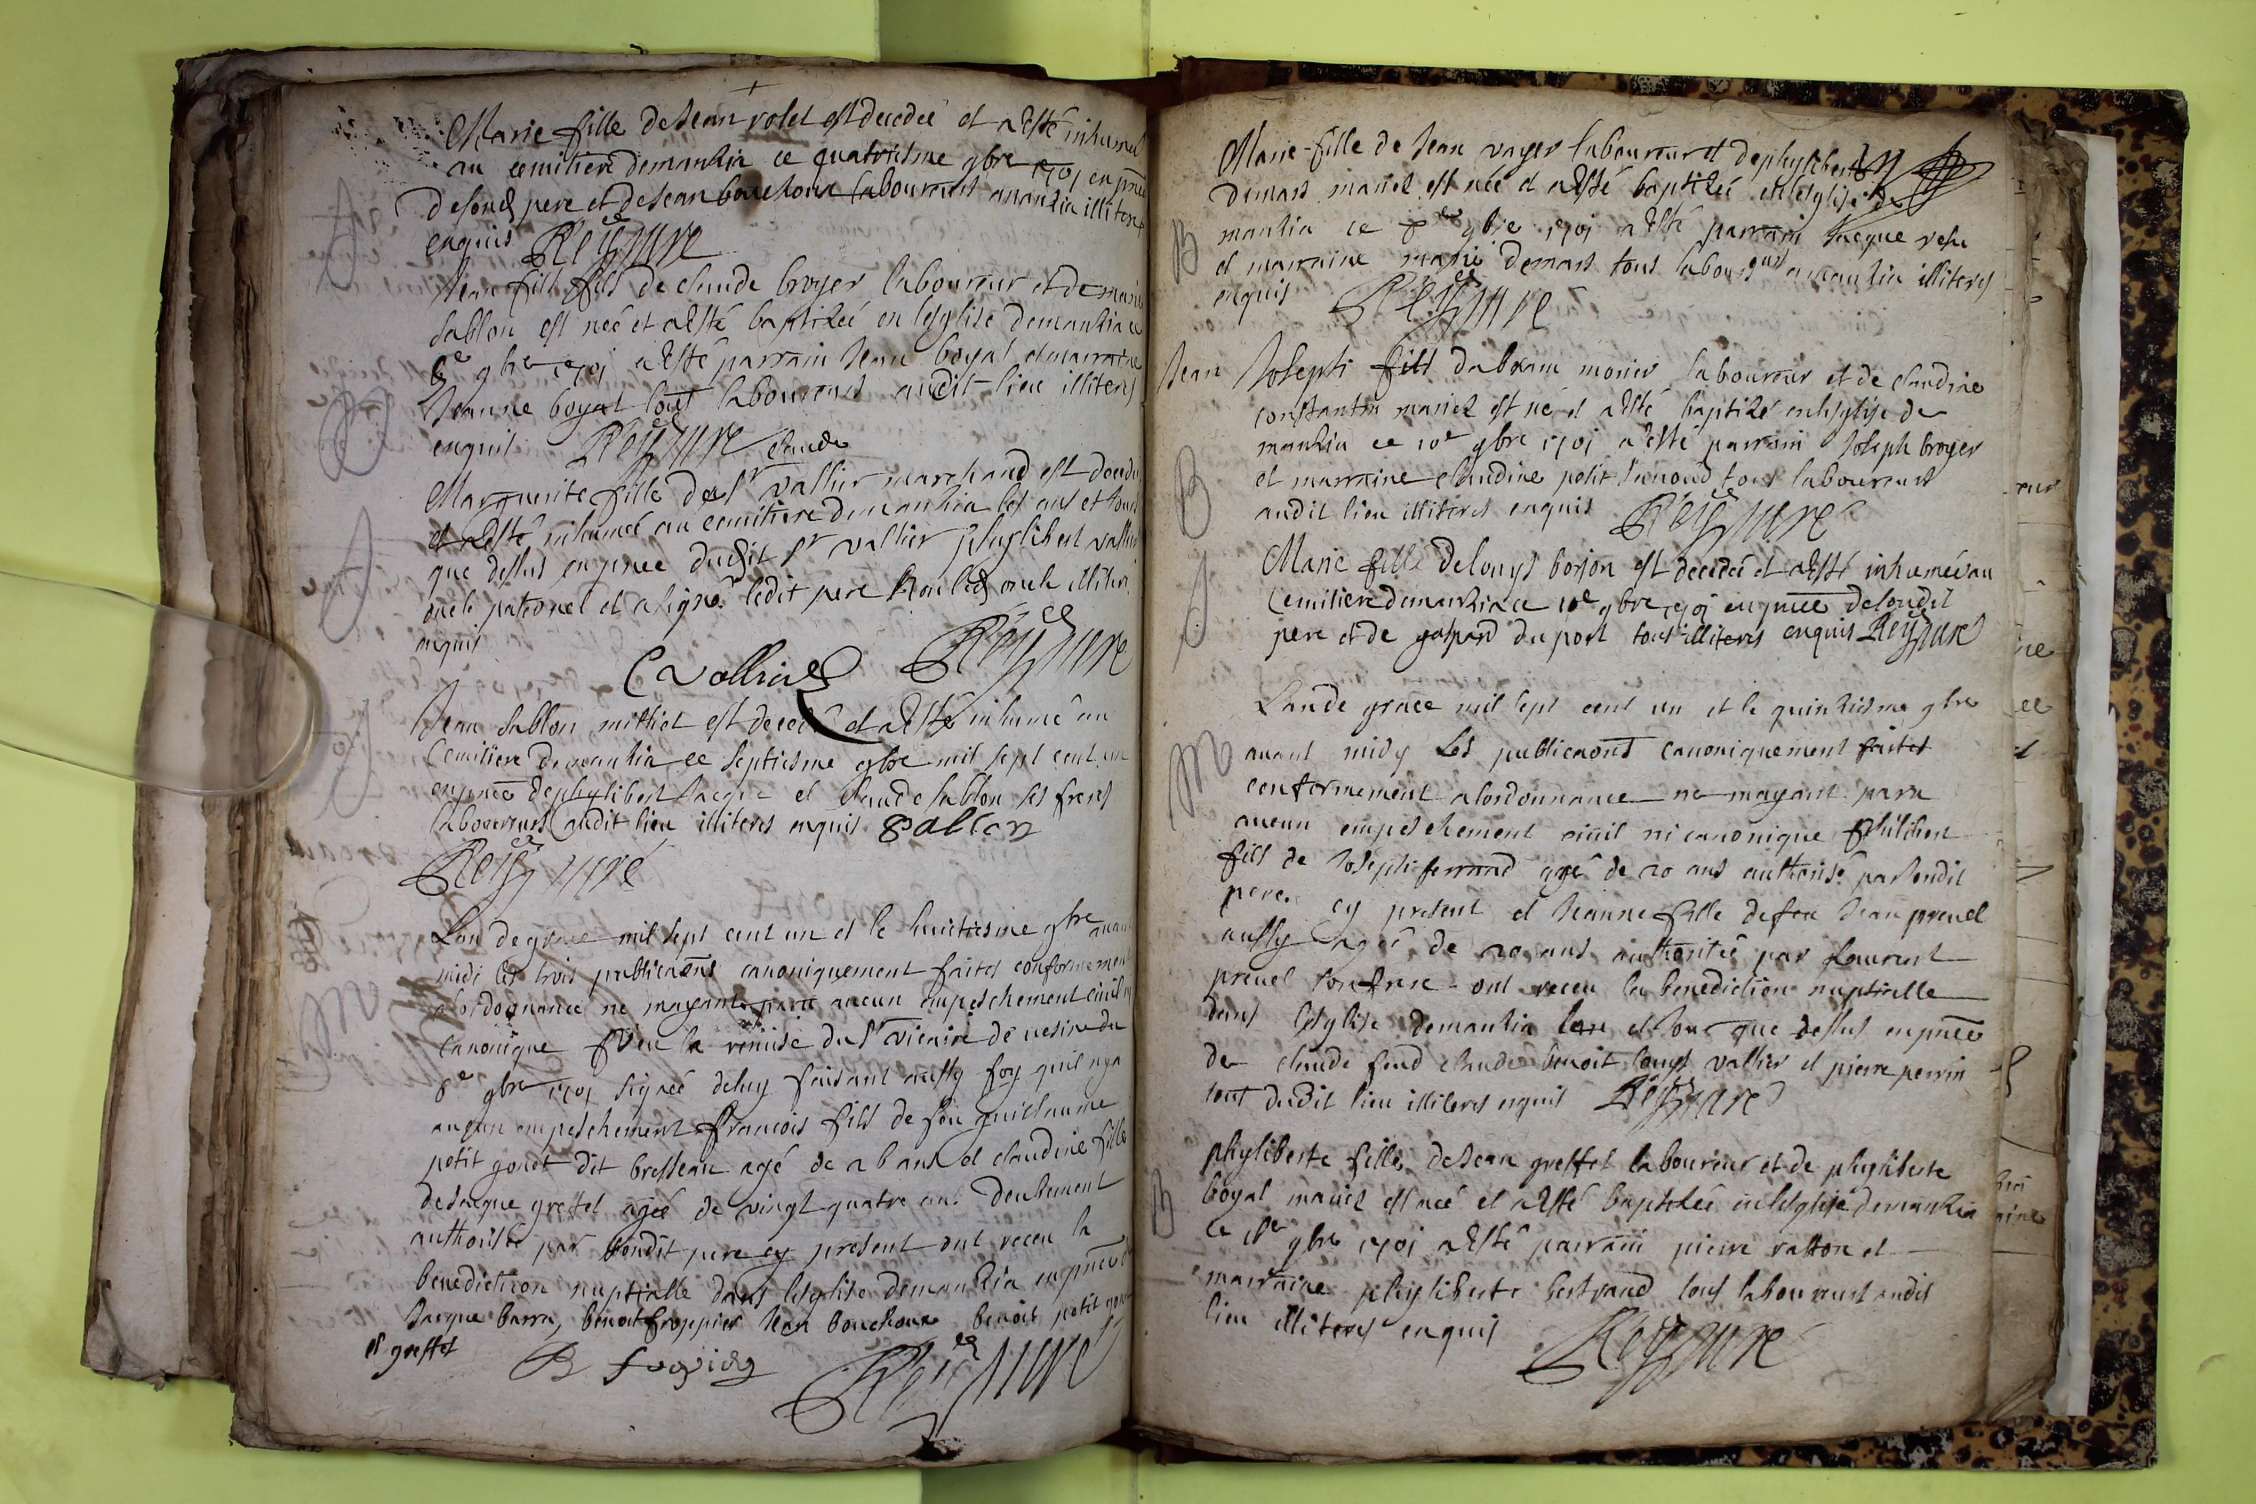 Marie fille de Jean rolet est decedée et a esté inhumeé
au cemitiere demanzia ce quatriesme 9bre 1701 en pnce
desond pere et deJean bouchoux laboureurs a manzia illiteres
enquis Rey curé
Jean fils de claude broyer laboureur et de marie
Sablon est neé et a Esté baptizeé en lesglise demanzia ce
9bre 1701 a Esté parrain Jean boyat et marraine
Jeanne boyat tous laboureurs audit lieu illiteres
enquis Rey curé
claude
Marguerite fille de Sr vallier marchand est decedeé
et a Esté inhumeé au cemitiere demanzia les ans et jour
que dessus en pnce dudit Sr vallier phylibert vallier
oncle paternel et a signé ledit pere non led oncle illitere
enquis
C vallier Rey curé
Jean Sablon est decedé et a Esté inhumé au
Cemitiere demanzia ce septiesme 9bre mil sept cent un
en pnce dephylibert Jacque et Claude Sablon ses freres
laboureurs audit lieu illiteres enquis
Rey curé
Lan de grace mil sept cent un et le huictiesme 9bre avant
midi les trois publicaons canoniquement faites conformement
a lordonnance ne mayant paru aucun empeschement civil ni
canonique veu la remise du Sr vicaire de
8e 9bre 1701 signeé deluy faisant aussy foy quil nya
aucun empeschement francois fils de feu guilliaume
petit gonet dit bresseau agé de 26 ans et claudine fille
deJacque greffet ageé de vingt quatre ans deuhement
authoriseé par sondit pere cy present ont receu la
benediction nuptialle dans lesglise demanzia en pnce de
Jacque barra, benoit froppier Jean bouchoux benoit petit gonet
et greffet
Rey curé
Marie fille de Jean vager laboureur et dephyliberte
Demars mariez est neé et a Esté baptizeé en lesglise de
B
manzia ce 9bre 1701 a Esté parrain Jacque
et marraine marie demars tous laboureurs a manzia illiteres
enquis Rey curé
Jean Joseph fils dabram monier laboureur et de claudine
constantin mariez est né et a Esté baptizé en lesglise de
B
manzia ce 10e 9bre 1701 a Esté parrain Joseph broyer
et marraine claudine petit Janaud tous laboureurs
audit lieu illiteres enquis Rey curé
Marie fille delouys borjon est decedeé et a Esté inhumeé au
Cemitiere demanzia ce 10e 9bre 1701 en pnce desondit
pere et de gaspard du port tous illiteres enquis Rey curé
Lan de grace mil sept cent un et le quinziesme 9bre
M
avant midy les publicaons canoniquement faites
conformement a lordonnance ne mayant paru
aucun empeschement civil ni canonique philibert
fils de Joseph ferrand agé de 20 ans authorisé par sondit
pere cy present et Jeanne fille de feu Jean prevel
aussy ageé de 20 ans authoriseé par Laurent
prevel son frere ont receu la benediction nuptialle
dans lesglise demanzia lan et jour que dessus en pnce
de claude benoit louys vallier et pierre perrin
tous dudit lieu illiteres enquis Rey curé
phyliberte fille deJean greffet laboureur et de phyliberte
B
boyat mariez est neé et a Esté baptizeé en lesglise demanzia
ce 18e 9bre 1701 a Esté parrain pierre ratton et
marraine phyliberte bertrand tous laboureurs audit
lieu illiteres enquis Rey curé